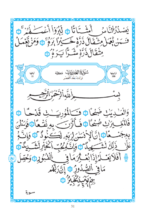 يَصْدُرُ ٱلنَّاسُ أَشْتَاتًا لِّيُرَوْا۟ أَعْمَٰلَهُمْ
فَمَن يَعْمَلْ مِثْقَالَ ذَرَّةٍ خَيْرًا يَرَهُۥ وَمَن يَعْمَلْ
مِثْقَالَ ذَرَّةٍ شَرًّا يَرَهُۥ
سُورَةُ العَادِيَاتِ
بِسْمِ ٱللَّهِ ٱلرَّحْمَٰنِ ٱلرَّحِيمِ
وَٱلْعَٰدِيَٰتِ ضَبْحًا فَٱلْمُورِيَٰتِ قَدْحًا
فَٱلْمُغِيرَٰتِ صُبْحًا فَأَثَرْنَ بِهِۦ نَقْعًا فَوَسَطْنَ
بِهِۦ جَمْعًا إِنَّ ٱلْإِنسَٰنَ لِرَبِّهِۦ لَكَنُودٌ وَإِنَّهُۥ
عَلَىٰ ذَٰلِكَ لَشَهِيدٌ وَإِنَّهُۥ لِحُبِّ ٱلْخَيْرِ لَشَدِيدٌ
أَفَلَا يَعْلَمُ إِذَا بُعْثِرَ مَا فِى ٱلْقُبُورِ وَحُصِّلَ
مَا فِى ٱلصُّدُورِ إِنَّ رَبَّهُم
بِهِمْ يَوْمَئِذٍ لَّخَبِيرٌۢ